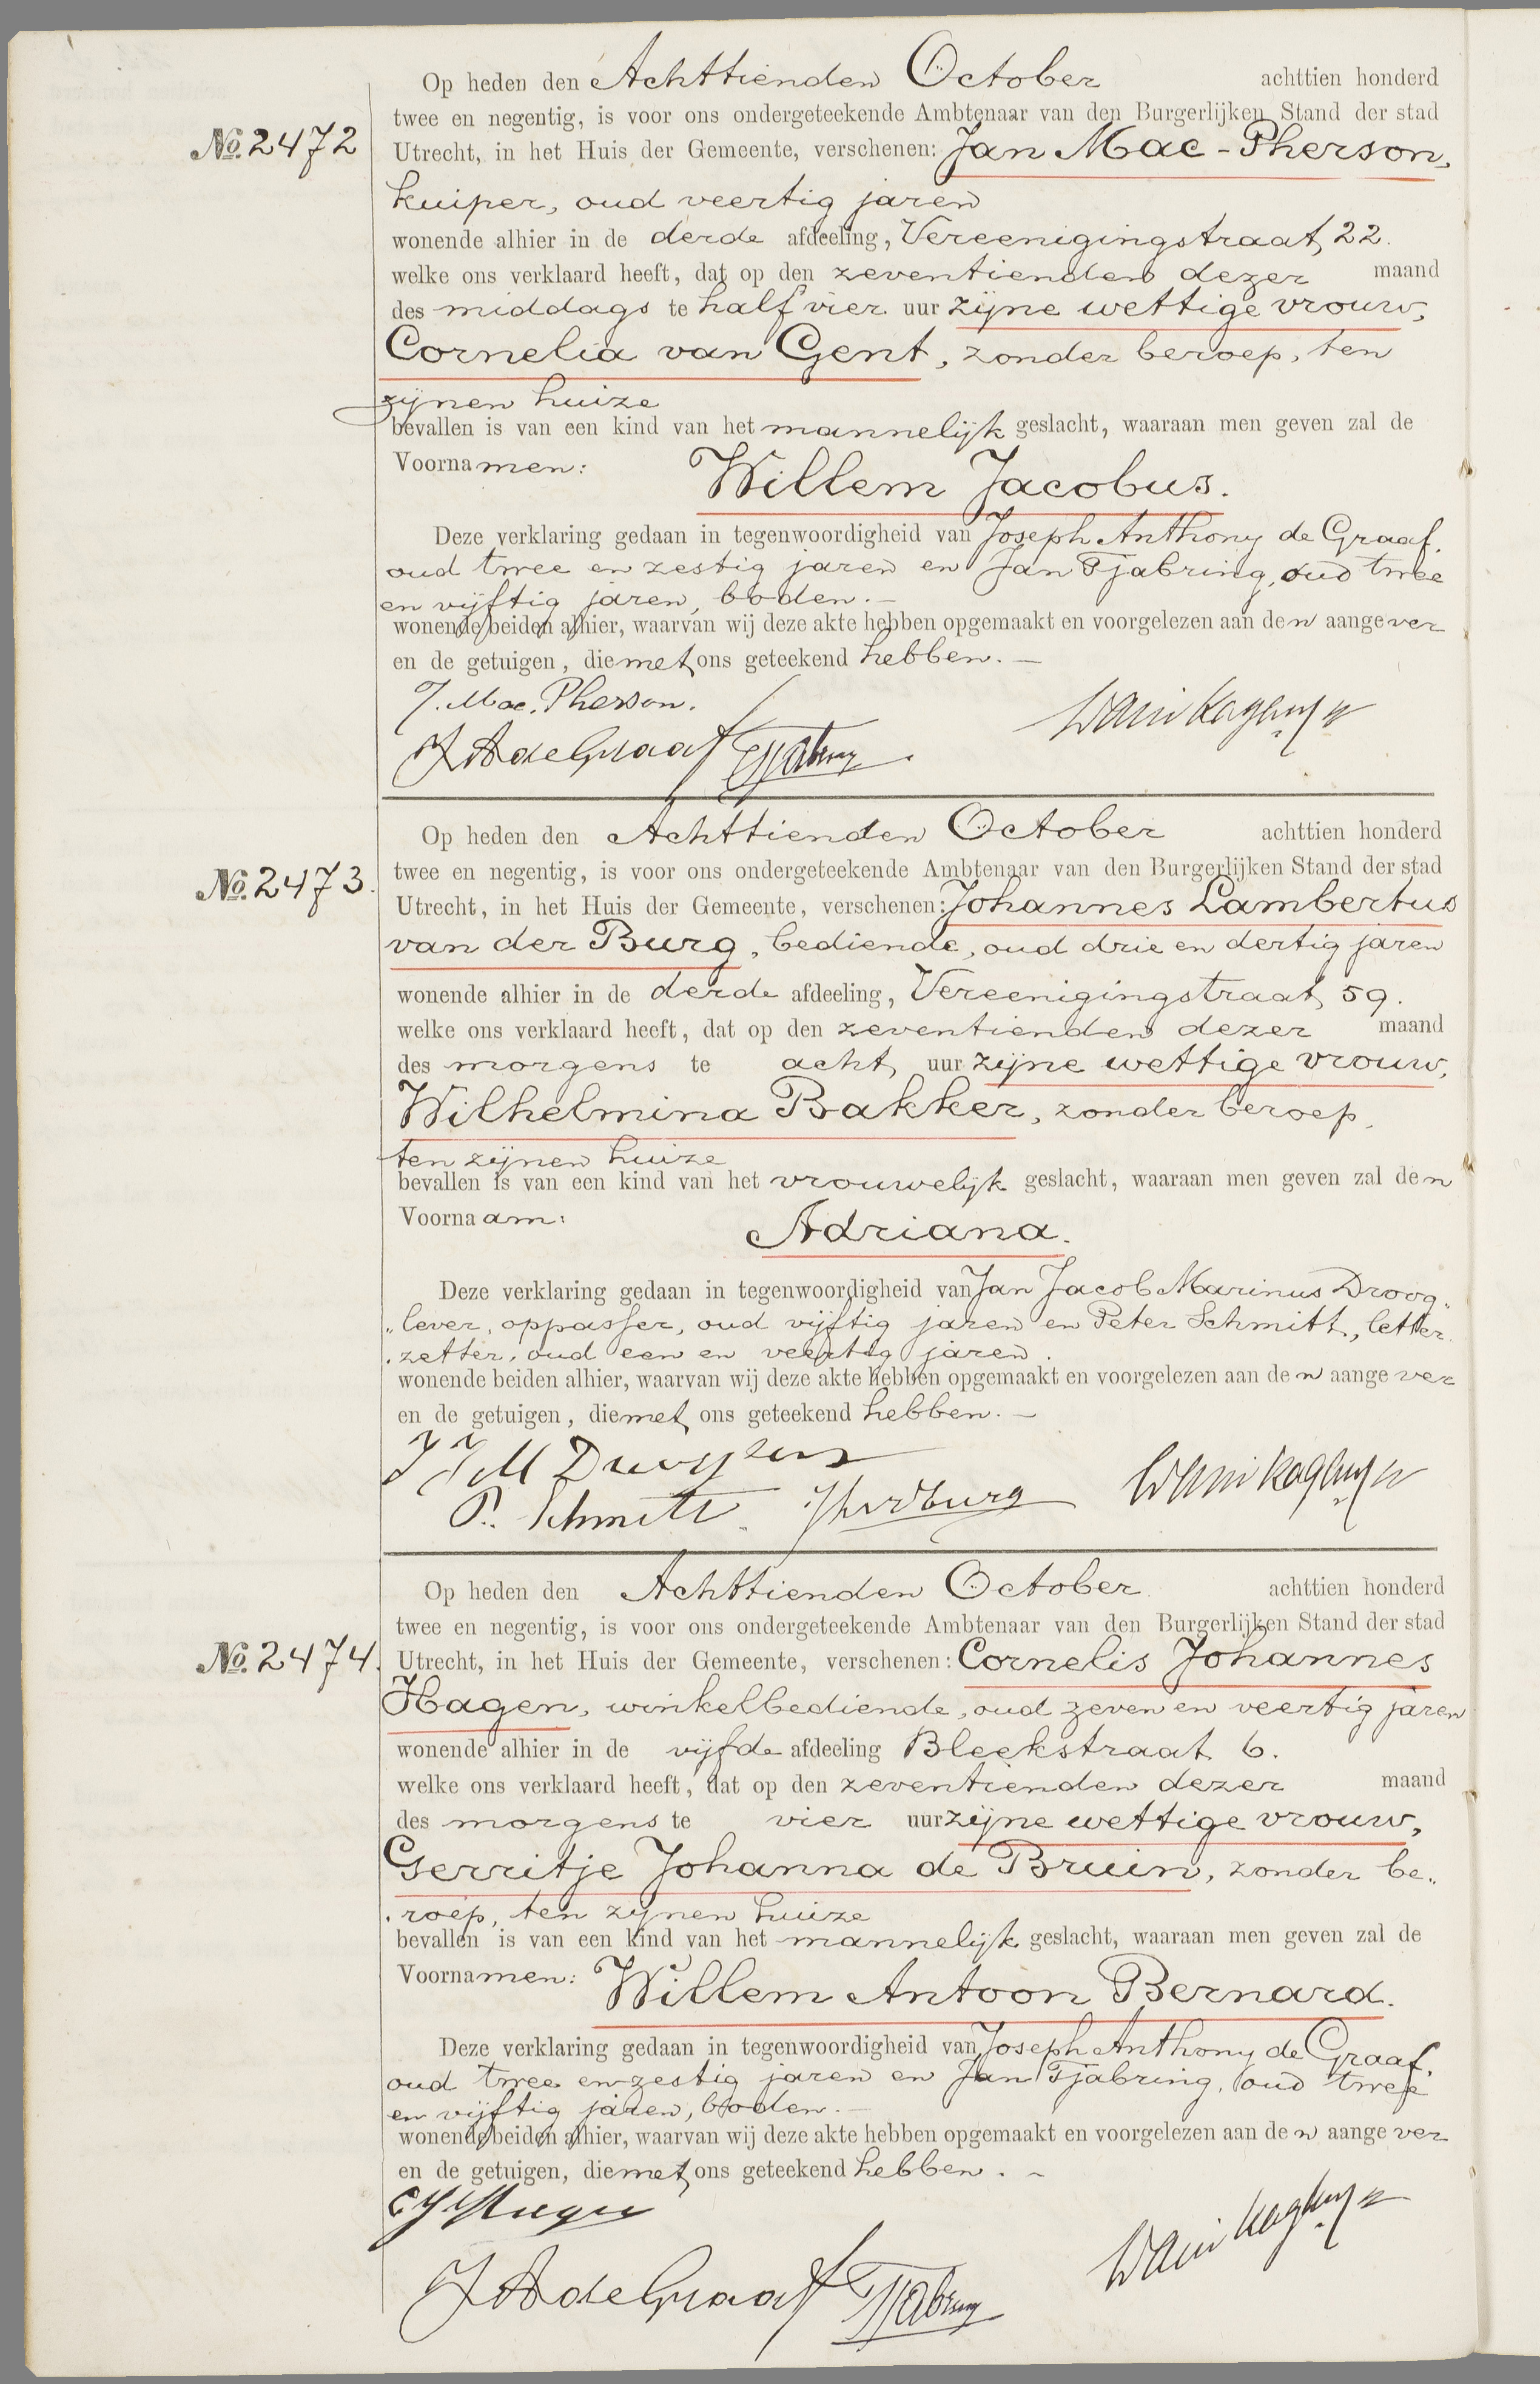 Op heden den Achttienden October achttien honderd
twee en negentig, is voor ons ondergeteekende Ambtenaar van den Burgerlijken Stand der stad
No. 2472
Utrecht, in het Huis der Gemeente, verschenen: Jan Mac-Pherson,
kuiper, oud veertig jaren
wonende alhier in de derde afdeeling, Vereenigingstraat 22.
welke ons verklaard heeft, dat op den zeventienden dezer maand
des middags te half vier uur zijne wettige vrouw,
Cornelia van Gent, zonder beroep, ten
zijnen huize
bevallen is van een kind van het mannelijk geslacht, waaraan men geven zal de
Voornamen:
Willem Jacobus.
Deze verklaring gedaan in tegenwoordigheid van Joseph Anthony de Graaf,
oud twee en zestig jaren en Jan Tjabring, oud twee
en vijftig jaren, boden.—
wonende beiden alhier, waarvan wij deze akte hebben opgemaakt en voorgelezen aan den aangever
en de getuigen, die met ons geteekend hebben.—
J. Mac. Pherson.
J A de Graaf Tjabring
Op heden den Achttienden October achttien honderd
twee en negentig, is voor ons ondergeteekende Ambtenaar van den Burgerlijken Stand der stad
No. 2473.
Utrecht, in het Huis der Gemeente, verschenen: Johannes Lambertus
van der Burg, bediende, oud drie en dertig jaren
wonende alhier in de derde afdeeling, Vereenigingstraat 59.
welke ons verklaard heeft, dat op den zeventienden dezer maand
des morgens te acht uur zijne wettige vrouw,
Wilhelmina Bakker, zonder beroep,
ten zijnen huize
bevallen is van een kind van het vrouwelijk geslacht, waaraan men geven zal den
Voornaam:
Adriana.
Deze verklaring gedaan in tegenwoordigheid van Jan Jacob Marinus Droog„
„lever, oppasser, oud vijftig jaren en Peter Schmitt, letter
.zetter, oud een en veertig jaren.
wonende beiden alhier, waarvan wij deze akte hebben opgemaakt en voorgelezen aan den aangever
en de getuigen, die met ons geteekend hebben.—
J J M Droogleever
P. Schmitt JLvdburg
Op heden den Achttienden October achttien honderd
twee en negentig, is voor ons ondergeteekende Ambtenaar van den Burgerlijken Stand der stad
No. 2474.
Utrecht, in het Huis der Gemeente, verschenen: Cornelis Johannes
Hagen, winkelbediende, oud zeven en veertig jaren
wonende alhier in de vijfde afdeeling Bleekstraat 6.
welke ons verklaard heeft, dat op den zeventienden dezer maand
des morgens te vier uur zijne wettige vrouw,
Gerritje Johanna de Bruin, zonder be„
.roep, ten zijnen huize
bevallen is van een kind van het mannelijk geslacht, waaraan men geven zal de
Voornamen:
Willem Antoon Bernard.
Deze verklaring gedaan in tegenwoordigheid van Joseph Anthony de Graaf,
oud twee en zestig jaren en Jan Tjabring, oud twee
en vijftig jaren, boden.—
wonende beiden alhier, waarvan wij deze akte hebben opgemaakt en voorgelezen aan den aangever
en de getuigen, die met ons geteekend hebben.—
C J Hagen
J A de Graaf Tjabring